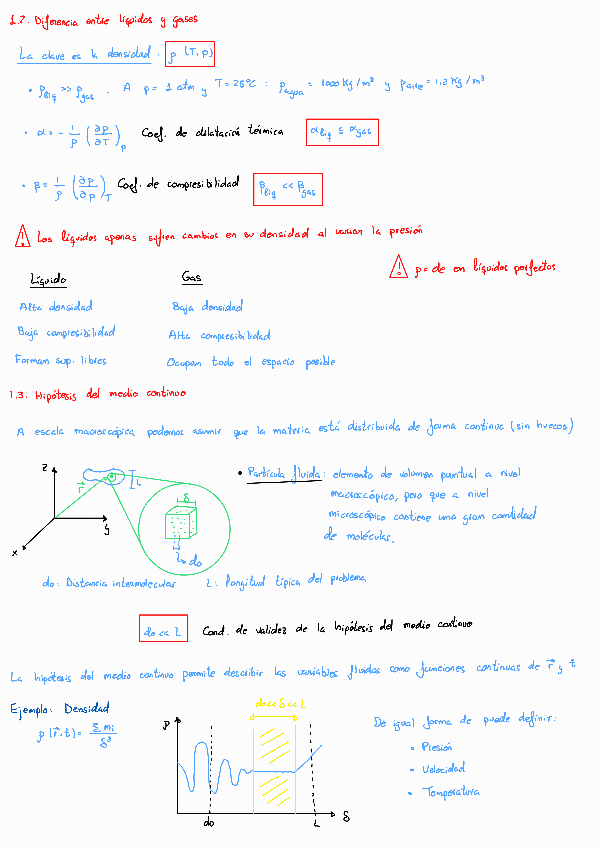 1.2. Diferencia entre líquidos y gases
La clave es la densidad: ρ (T, p)
• ρliq >> ρgas. A p = 1 atm y T = 25°C : ρagua = 1000 Kg/m³ y ρaire = 1,2 Kg/m³
• α = - 1/ρ (∂ρ/∂T)p Coef. de dilatación térmica αliq ≤ αgas
• β = 1/ρ (∂ρ/∂p)T Coef. de compresibilidad βliq << βgas
! Los líquidos apenas sufren cambios en su densidad al variar la presión
! ρ = cte en líquidos perfectos
Líquido Gas
Alta densidad Baja densidad
Baja compresibilidad Alta compresibilidad
Forman sup. libres Ocupan todo el espacio posible
1.3. Hipótesis del medio continuo
A escala macroscópica podemos asumir que la materia está distribuida de forma continua (sin huecos)
z
r
L
y
x
δ
do
• Partícula fluida: elemento de volumen puntual a nivel
macroscópico, pero que a nivel
microscópico contiene una gran cantidad
de moléculas.
do: Distancia intermolecular L: longitud típica del problema
do << L Cond. de validez de la hipótesis del medio continuo
La hipótesis del medio continuo permite describir las variables fluidas como funciones continuas de r⃗ y t
Ejemplo: Densidad
ρ (r⃗, t) = Σ mi / δ³
do << δ << L
ρ
do
L
δ
De igual forma de puede definir:
• Presión
• Velocidad
• Temperatura